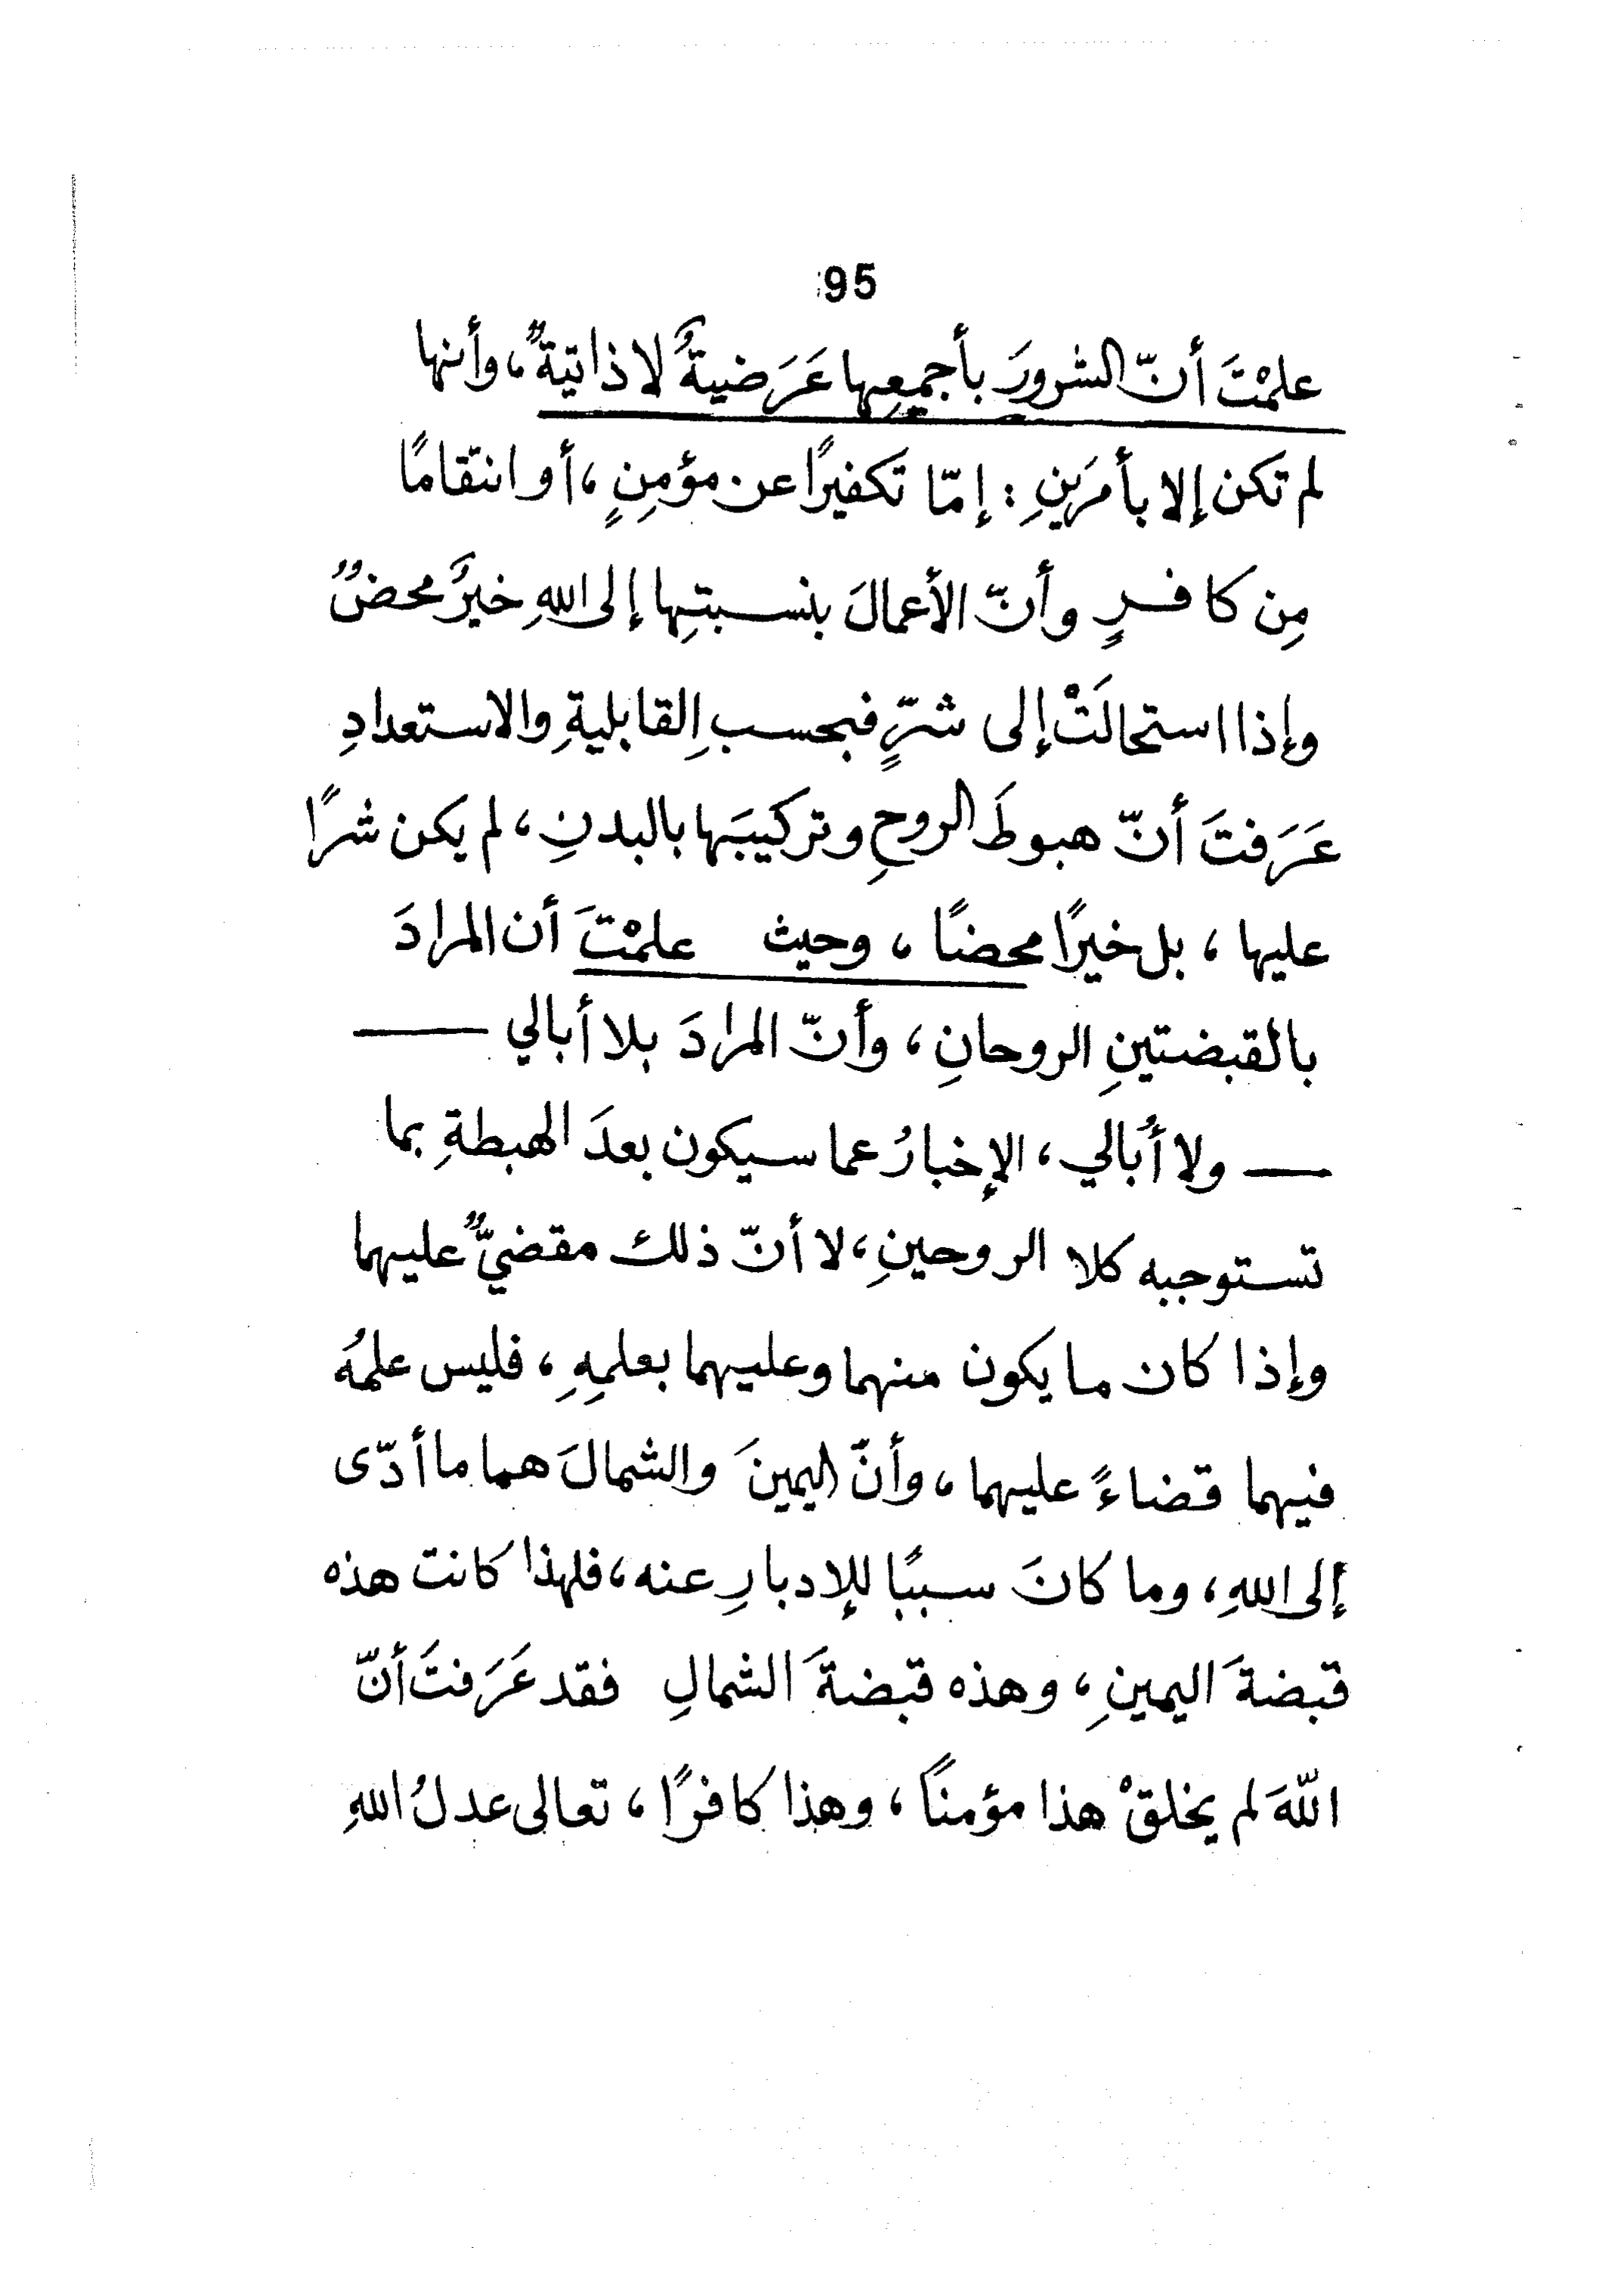 95
علمْتَ أنّ الشرورَ بأجمعِها عَرَضيةٌ لا ذاتيةٌ، وأنها
لم تكن إلا بأمرَينِ : إمّا تكفيرًا عن مؤمِنٍ ، أو انتقامًا
مِن كافرٍ وأنّ الأعمالَ بنسبتِها إلى اللهِ خيرٌ محضٌ
وإذا استحالَتْ إلى شرٍّ فبحسبِ القابليةِ والاستعدادِ
عَرَفتَ أنّ هبوطَ الروحِ وتركيبَها بالبدنِ ، لم يكن شرًا
عليها ، بل خيرًا محضًا ، وحيث علمْتَ أن المرادَ
بالقبضتينِ الروحانِ ، وأنّ المرادَ بلا أبالي —
— ولا أُبَالي ، الإخبارُ عما سيكون بعدَ الهبطةِ بما
تستوجبه كلا الروحينِ ، لا أنّ ذلك مقضيٌّ عليهما
وإذا كان ما يكون منهما وعليهما بعلمِهِ ، فليس علمُهُ
فيهما قضاءً عليهما ، وأنّ اليمينَ والشمالَ هما ما أدّى
إلى اللهِ ، وما كانَ سببًا للإدبارِ عنه ، فلهذا كانت هذه
قبضةَ اليمينِ ، وهذه قبضةَ الشمالِ فقد عَرَفتَ أنّ
اللّهَ لم يخلقْ هذا مؤمنًا ، وهذا كافرًا ، تعالى عدلُ اللهِ